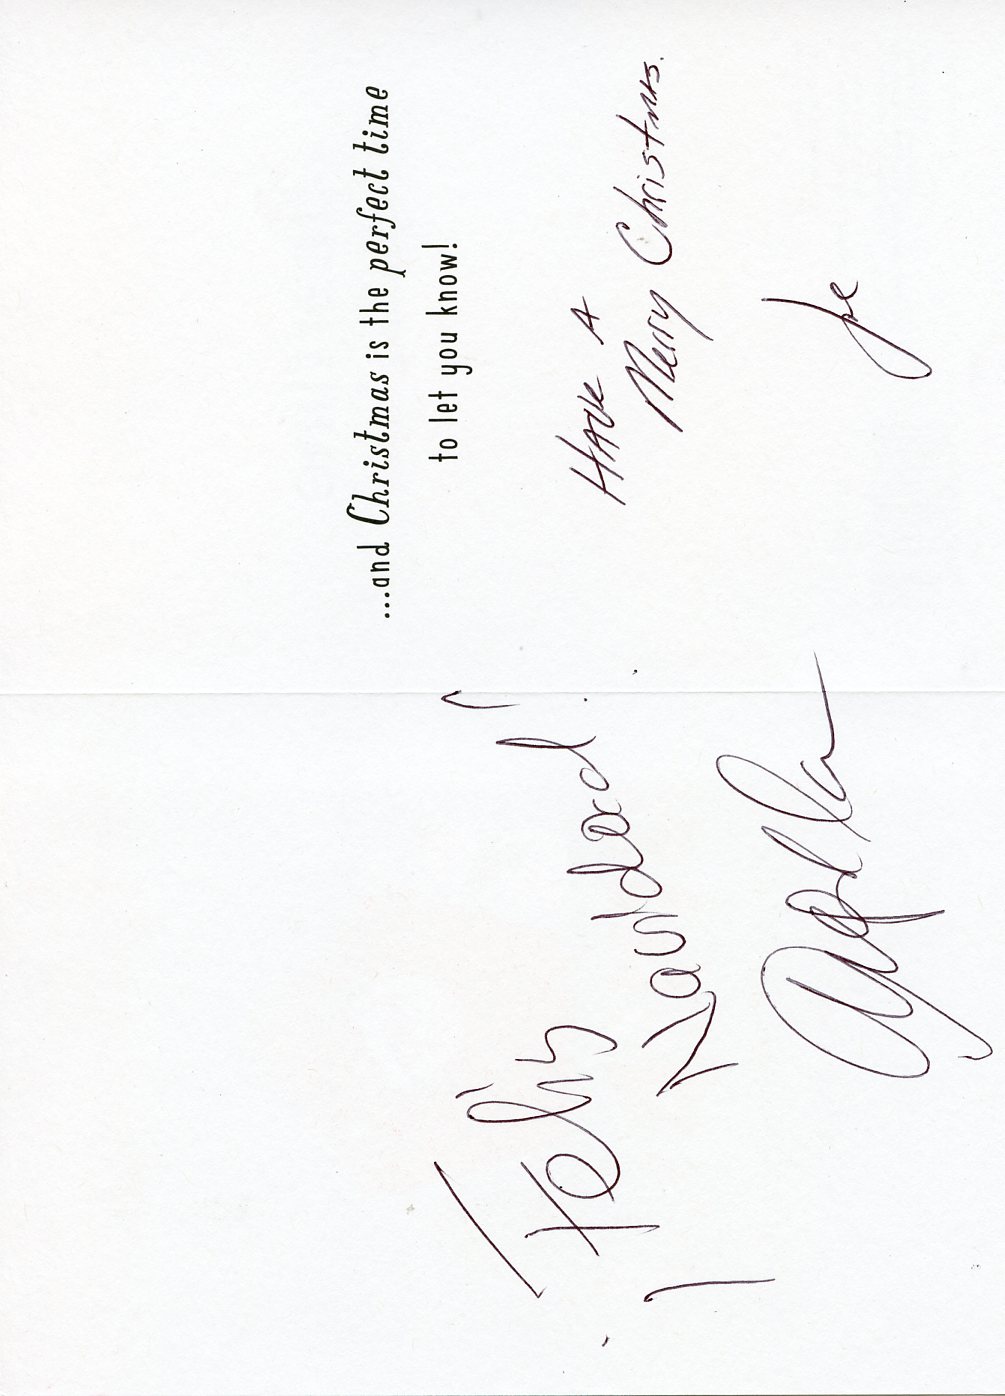 ...and Christmas is the perfect time
to let you know!
HAVE A
Merry Christmas.
Joe
¡Feliz
Navidad!